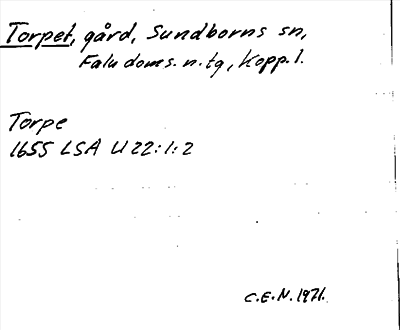 Torpet, gård, Sundborns sn,
Falu doms. n. tg, Kopp. l.
Torpe
1655 LSA U 22:1:2
C.E.N. 1971.